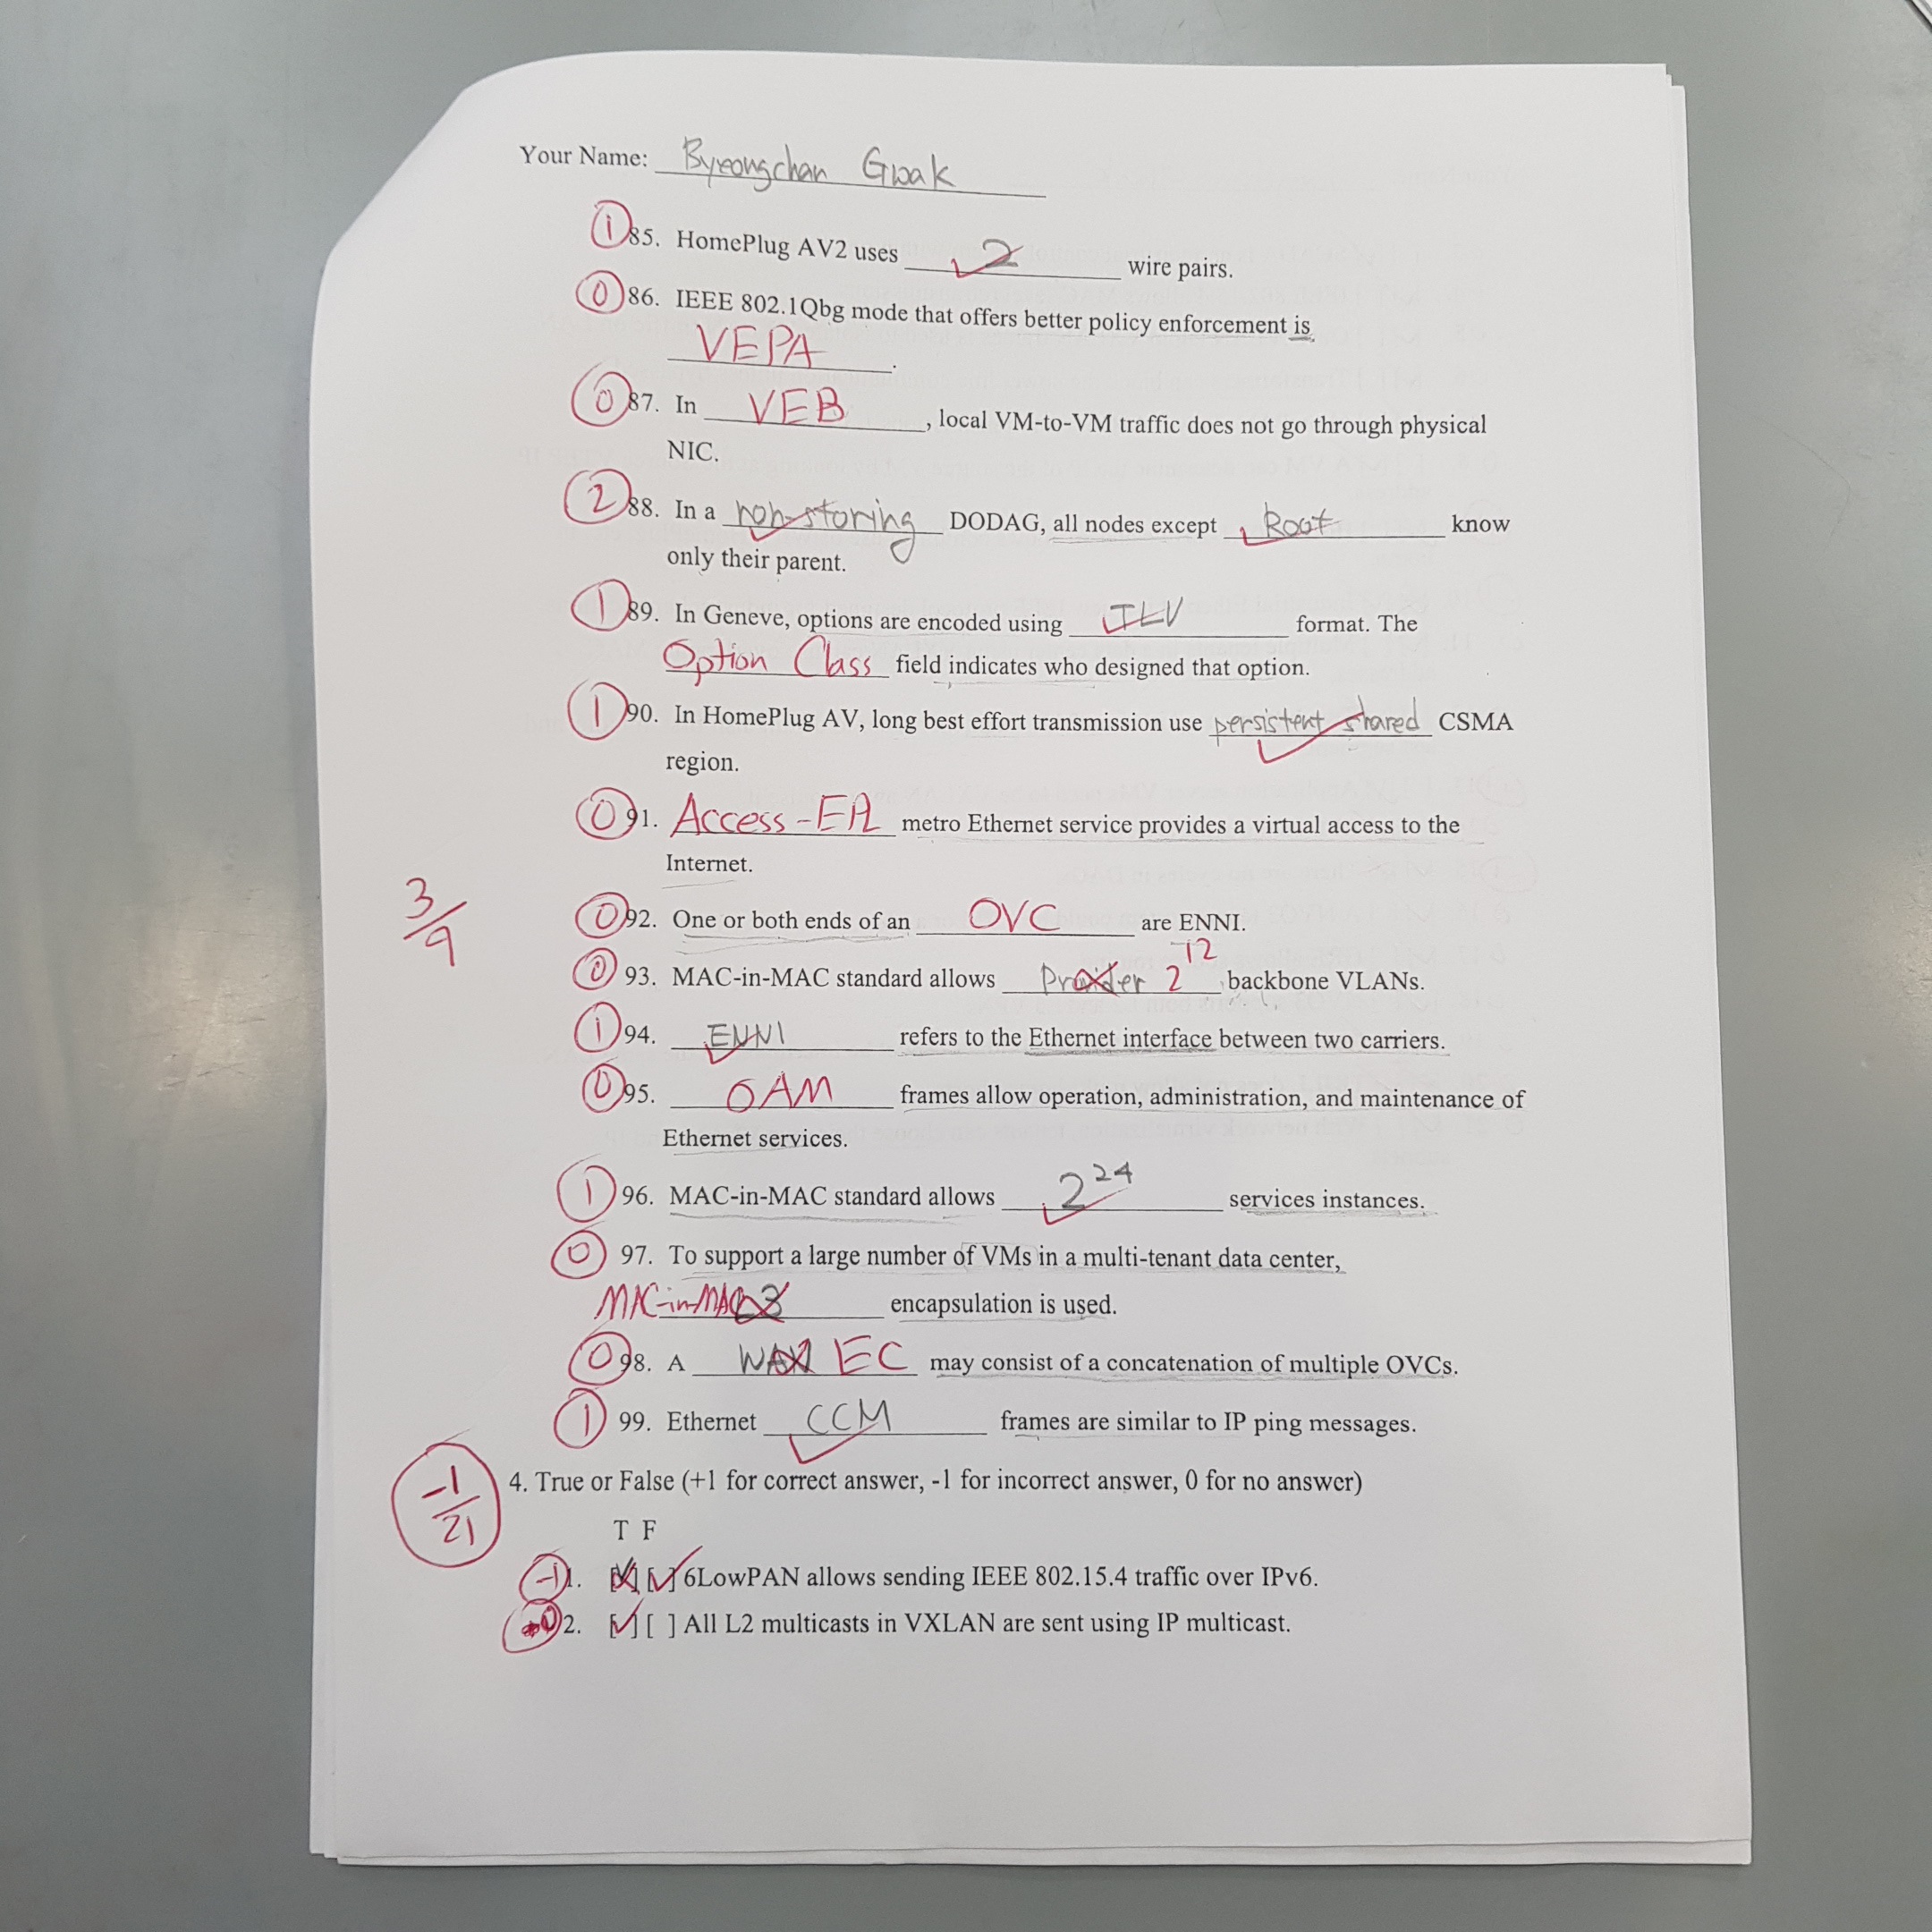 Your Name: Byeongchan Gwak
1 85. HomePlug AV2 uses 2 wire pairs.
0 86. IEEE 802.1Qbg mode that offers better policy enforcement is
VEPA.
0 87. In VEB, local VM-to-VM traffic does not go through physical
NIC.
2 88. In a non-storing DODAG, all nodes except Root know
only their parent.
1 89. In Geneve, options are encoded using TLV format. The
Option Class field indicates who designed that option.
1 90. In HomePlug AV, long best effort transmission use persistent shared CSMA
region.
0 91. Access-EPL metro Ethernet service provides a virtual access to the
Internet.
3/9
0 92. One or both ends of an OVC are ENNI.
0 93. MAC-in-MAC standard allows Provider 2^12 backbone VLANs.
1 94. ENNI refers to the Ethernet interface between two carriers.
0 95. OAM frames allow operation, administration, and maintenance of
Ethernet services.
1 96. MAC-in-MAC standard allows 2^24 services instances.
0 97. To support a large number of VMs in a multi-tenant data center,
MAC-in-MAC L3 encapsulation is used.
0 98. A EC may consist of a concatenation of multiple OVCs.
1 99. Ethernet CCM frames are similar to IP ping messages.
-1/21
4. True or False (+1 for correct answer, -1 for incorrect answer, 0 for no answer)
T F
-1 1. [✓] [✓] 6LowPAN allows sending IEEE 802.15.4 traffic over IPv6.
0 2. [✓] [ ] All L2 multicasts in VXLAN are sent using IP multicast.